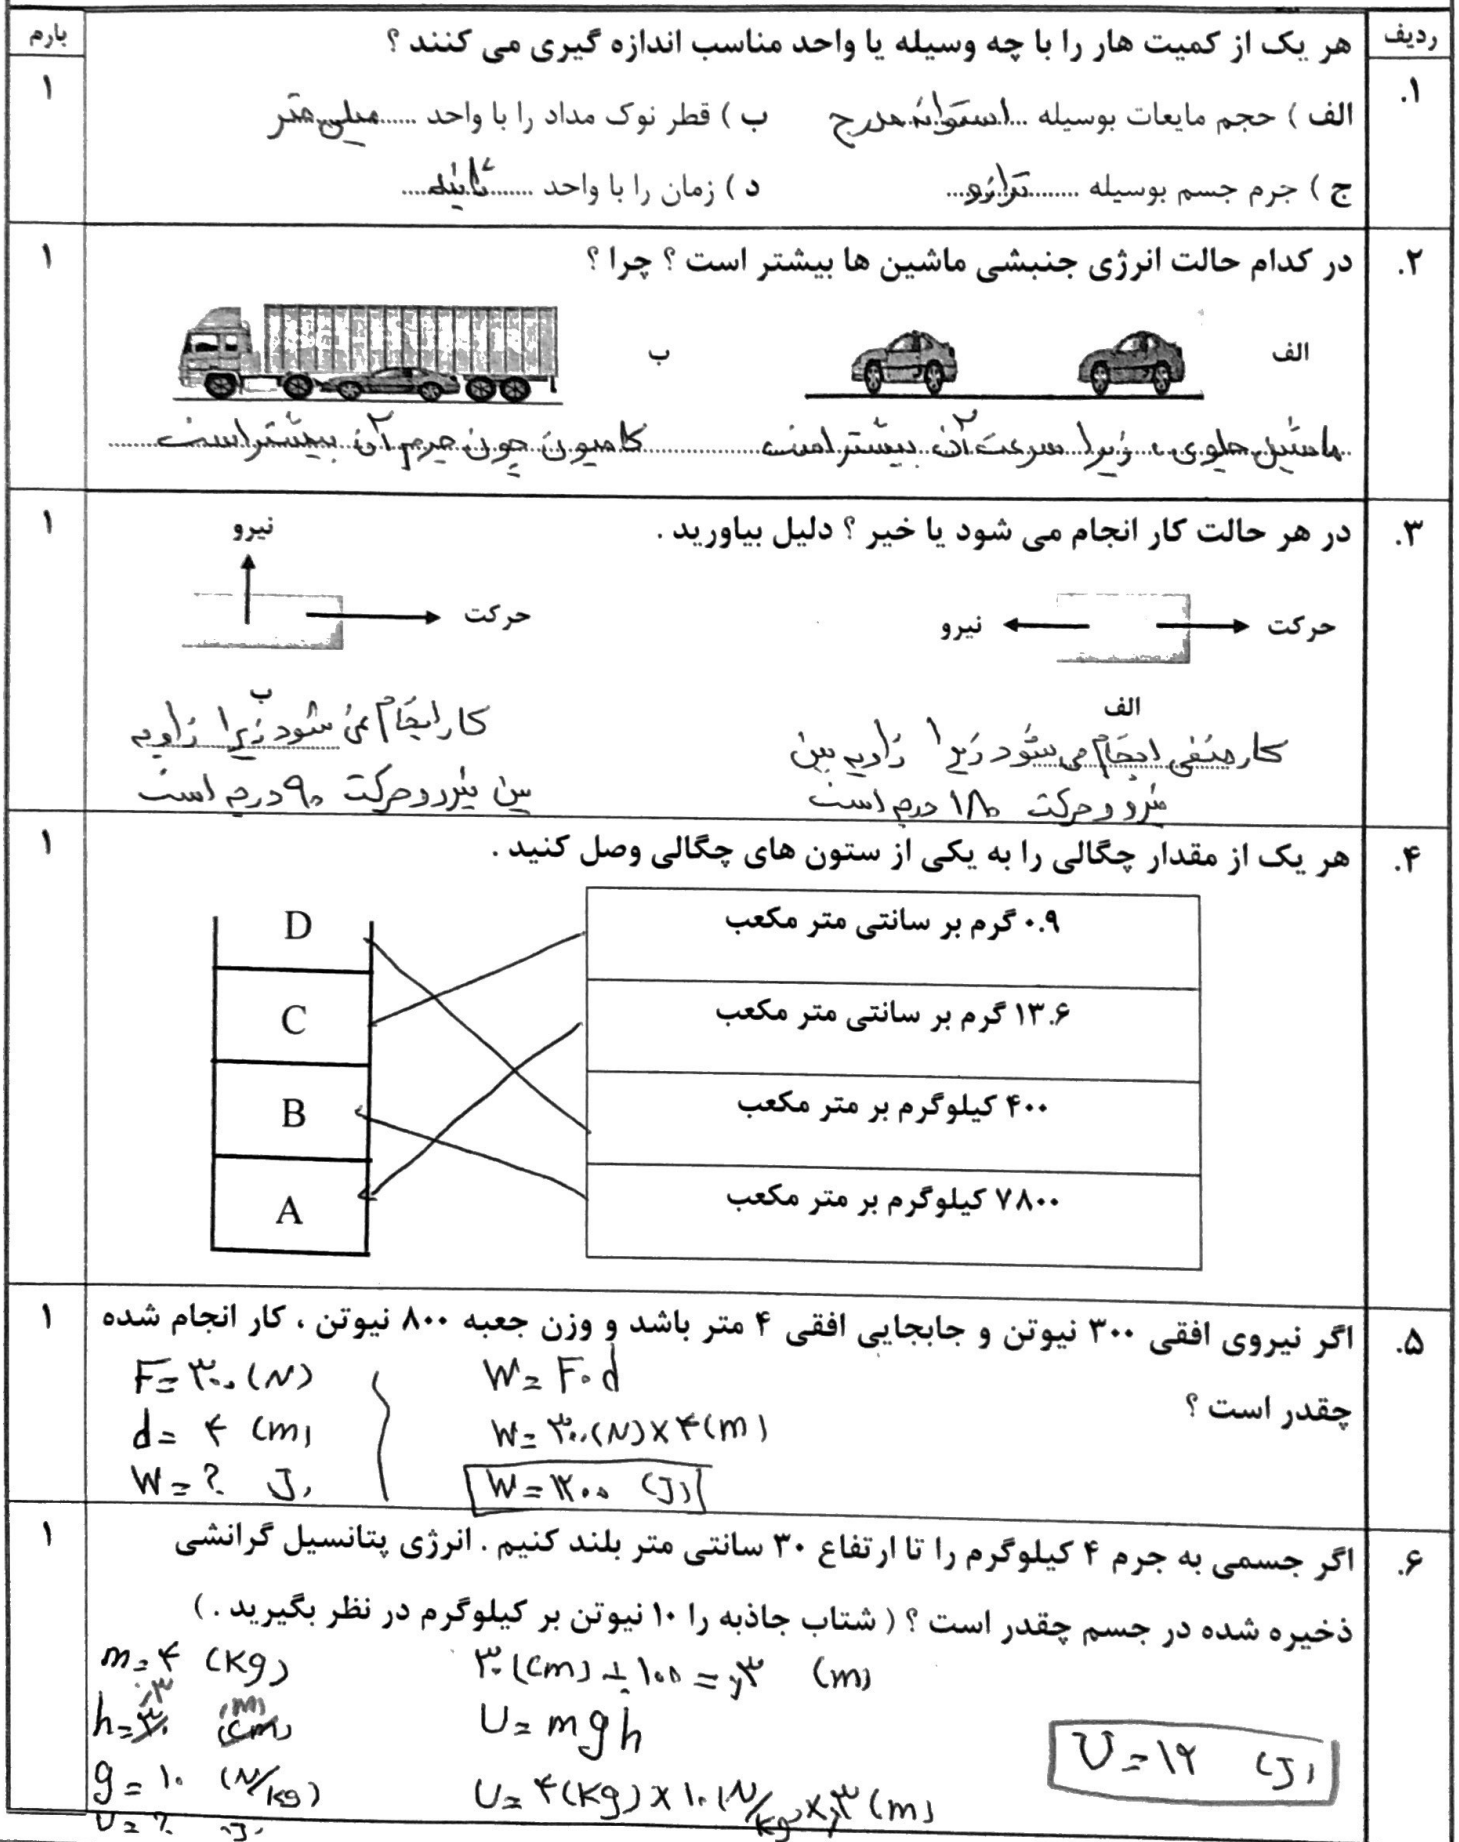 ردیف
هر یک از کمیت هار را با چه وسیله یا واحد مناسب اندازه گیری می کنند ؟
بارم
۱.
۱
الف ) حجم مایعات بوسیله ... استوانه مدرج
ب ) قطر نوک مداد را با واحد ...... میلی متر
ج ) جرم جسم بوسیله ......... ترازو ....
د ) زمان را با واحد ....... ثانیه ......
۲.
در کدام حالت انرژی جنبشی ماشین ها بیشتر است ؟ چرا ؟
۱
الف
ب
ماشین جلوی ، زیرا سرعت آن بیشتر است
کامیون چون جرم آن بیشتر است
۳.
در هر حالت کار انجام می شود یا خیر ؟ دلیل بیاورید .
۱
حرکت
نیرو
نیرو
حرکت
الف
کار منفی انجام می شود زیرا زاویه بین
نیرو و حرکت ۱۸۰ درجه است
ب
کار انجام نمی شود زیرا زاویه
بین نیرو و حرکت ۹۰ درجه است
۴.
هر یک از مقدار چگالی را به یکی از ستون های چگالی وصل کنید .
۱
۰.۹ گرم بر سانتی متر مکعب
۱۳.۶ گرم بر سانتی متر مکعب
۴۰۰ کیلوگرم بر متر مکعب
۷۸۰۰ کیلوگرم بر متر مکعب
D
C
B
A
۵.
اگر نیروی افقی ۳۰۰ نیوتن و جابجایی افقی ۴ متر باشد و وزن جعبه ۸۰۰ نیوتن ، کار انجام شده
۱
چقدر است ؟
F = ۳۰۰ (N)
d = ۴ (m)
W = ? J
W = F . d
W = ۳۰۰ (N) × ۴ (m)
W = ۱۲۰۰ (J)
۶.
اگر جسمی به جرم ۴ کیلوگرم را تا ارتفاع ۳۰ سانتی متر بلند کنیم . انرژی پتانسیل گرانشی
۱
ذخیره شده در جسم چقدر است ؟ ( شتاب جاذبه را ۱۰ نیوتن بر کیلوگرم در نظر بگیرید . )
m = ۴ (kg)
۳۰ (cm) ÷ ۱۰۰ = ۰٫۳ (m)
h = ۰٫۳ (m)
U = mgh
g = ۱۰ (N/kg)
U = ۴ (kg) × ۱۰ (N/kg) × ۰٫۳ (m)
U = ۱۲ (J)
U = ? J